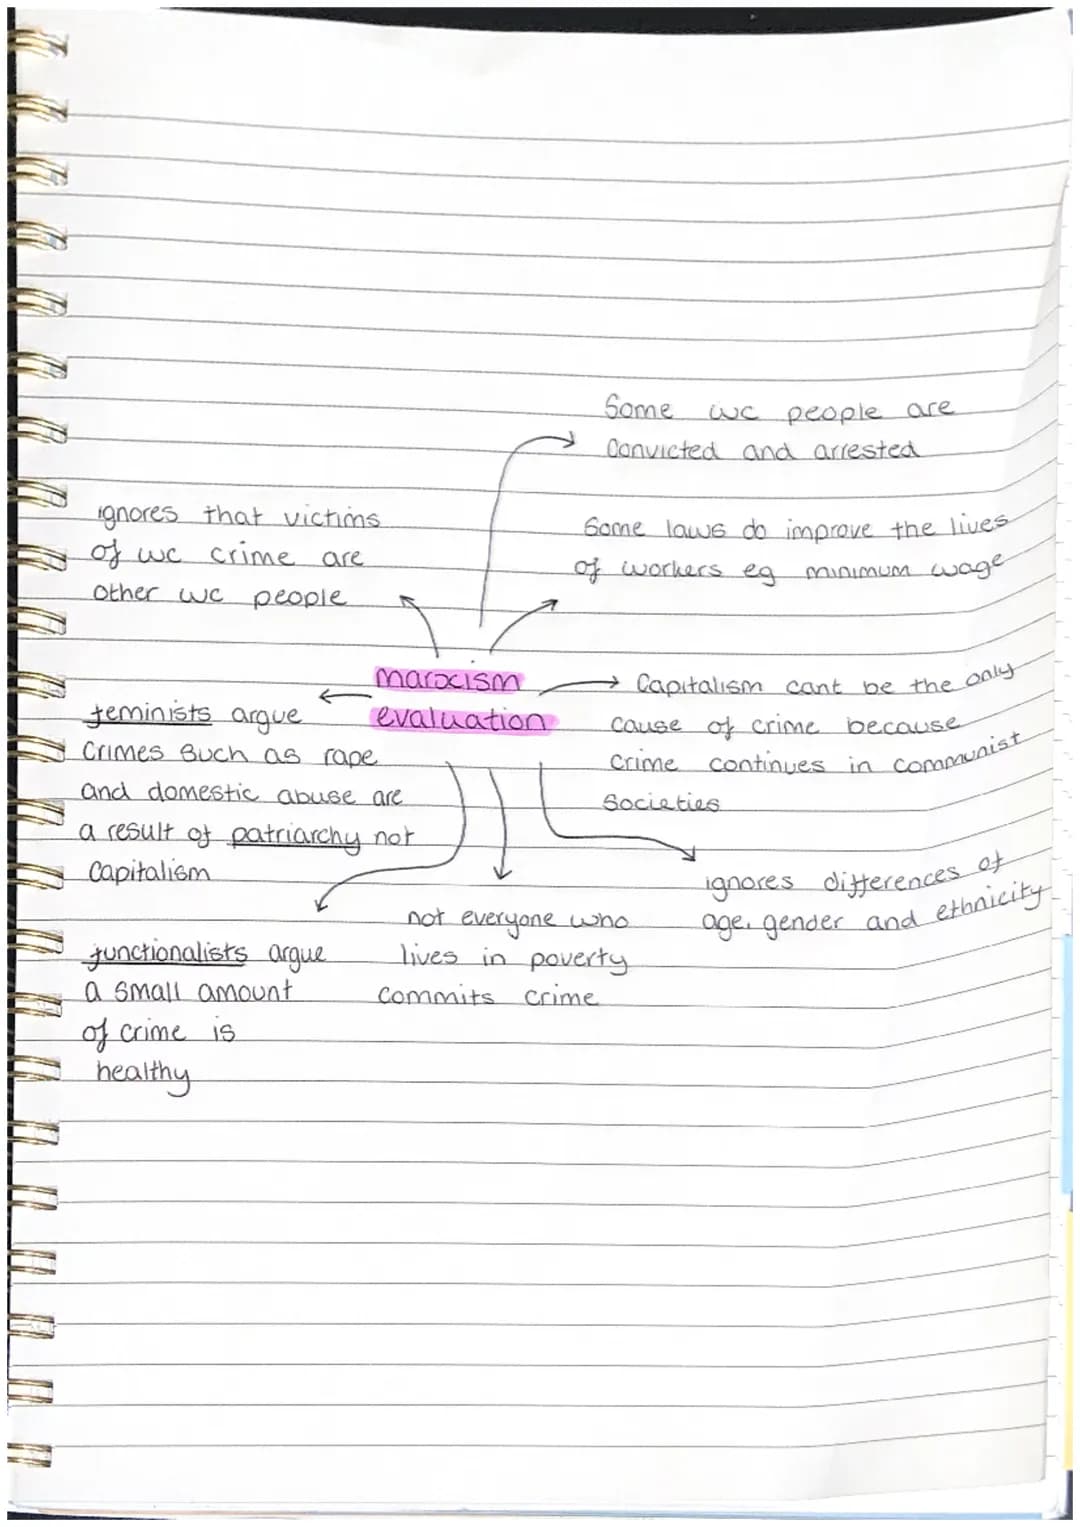 Some wc people are
Convicted and arrested
ignores that victims
of wc crime are
other wc people
Some laws do improve the lives
of workers eg minimum wage
marxism
evaluation
Capitalism cant be the only
cause of crime because
crime continues in communist
Societies
feminists argue
Crimes such as rape
and domestic abuse are
a result of patriarchy not
Capitalism
ignores differences of
age, gender and ethnicity
not everyone who
lives in poverty
commits crime
functionalists argue
a small amount
of crime is
healthy